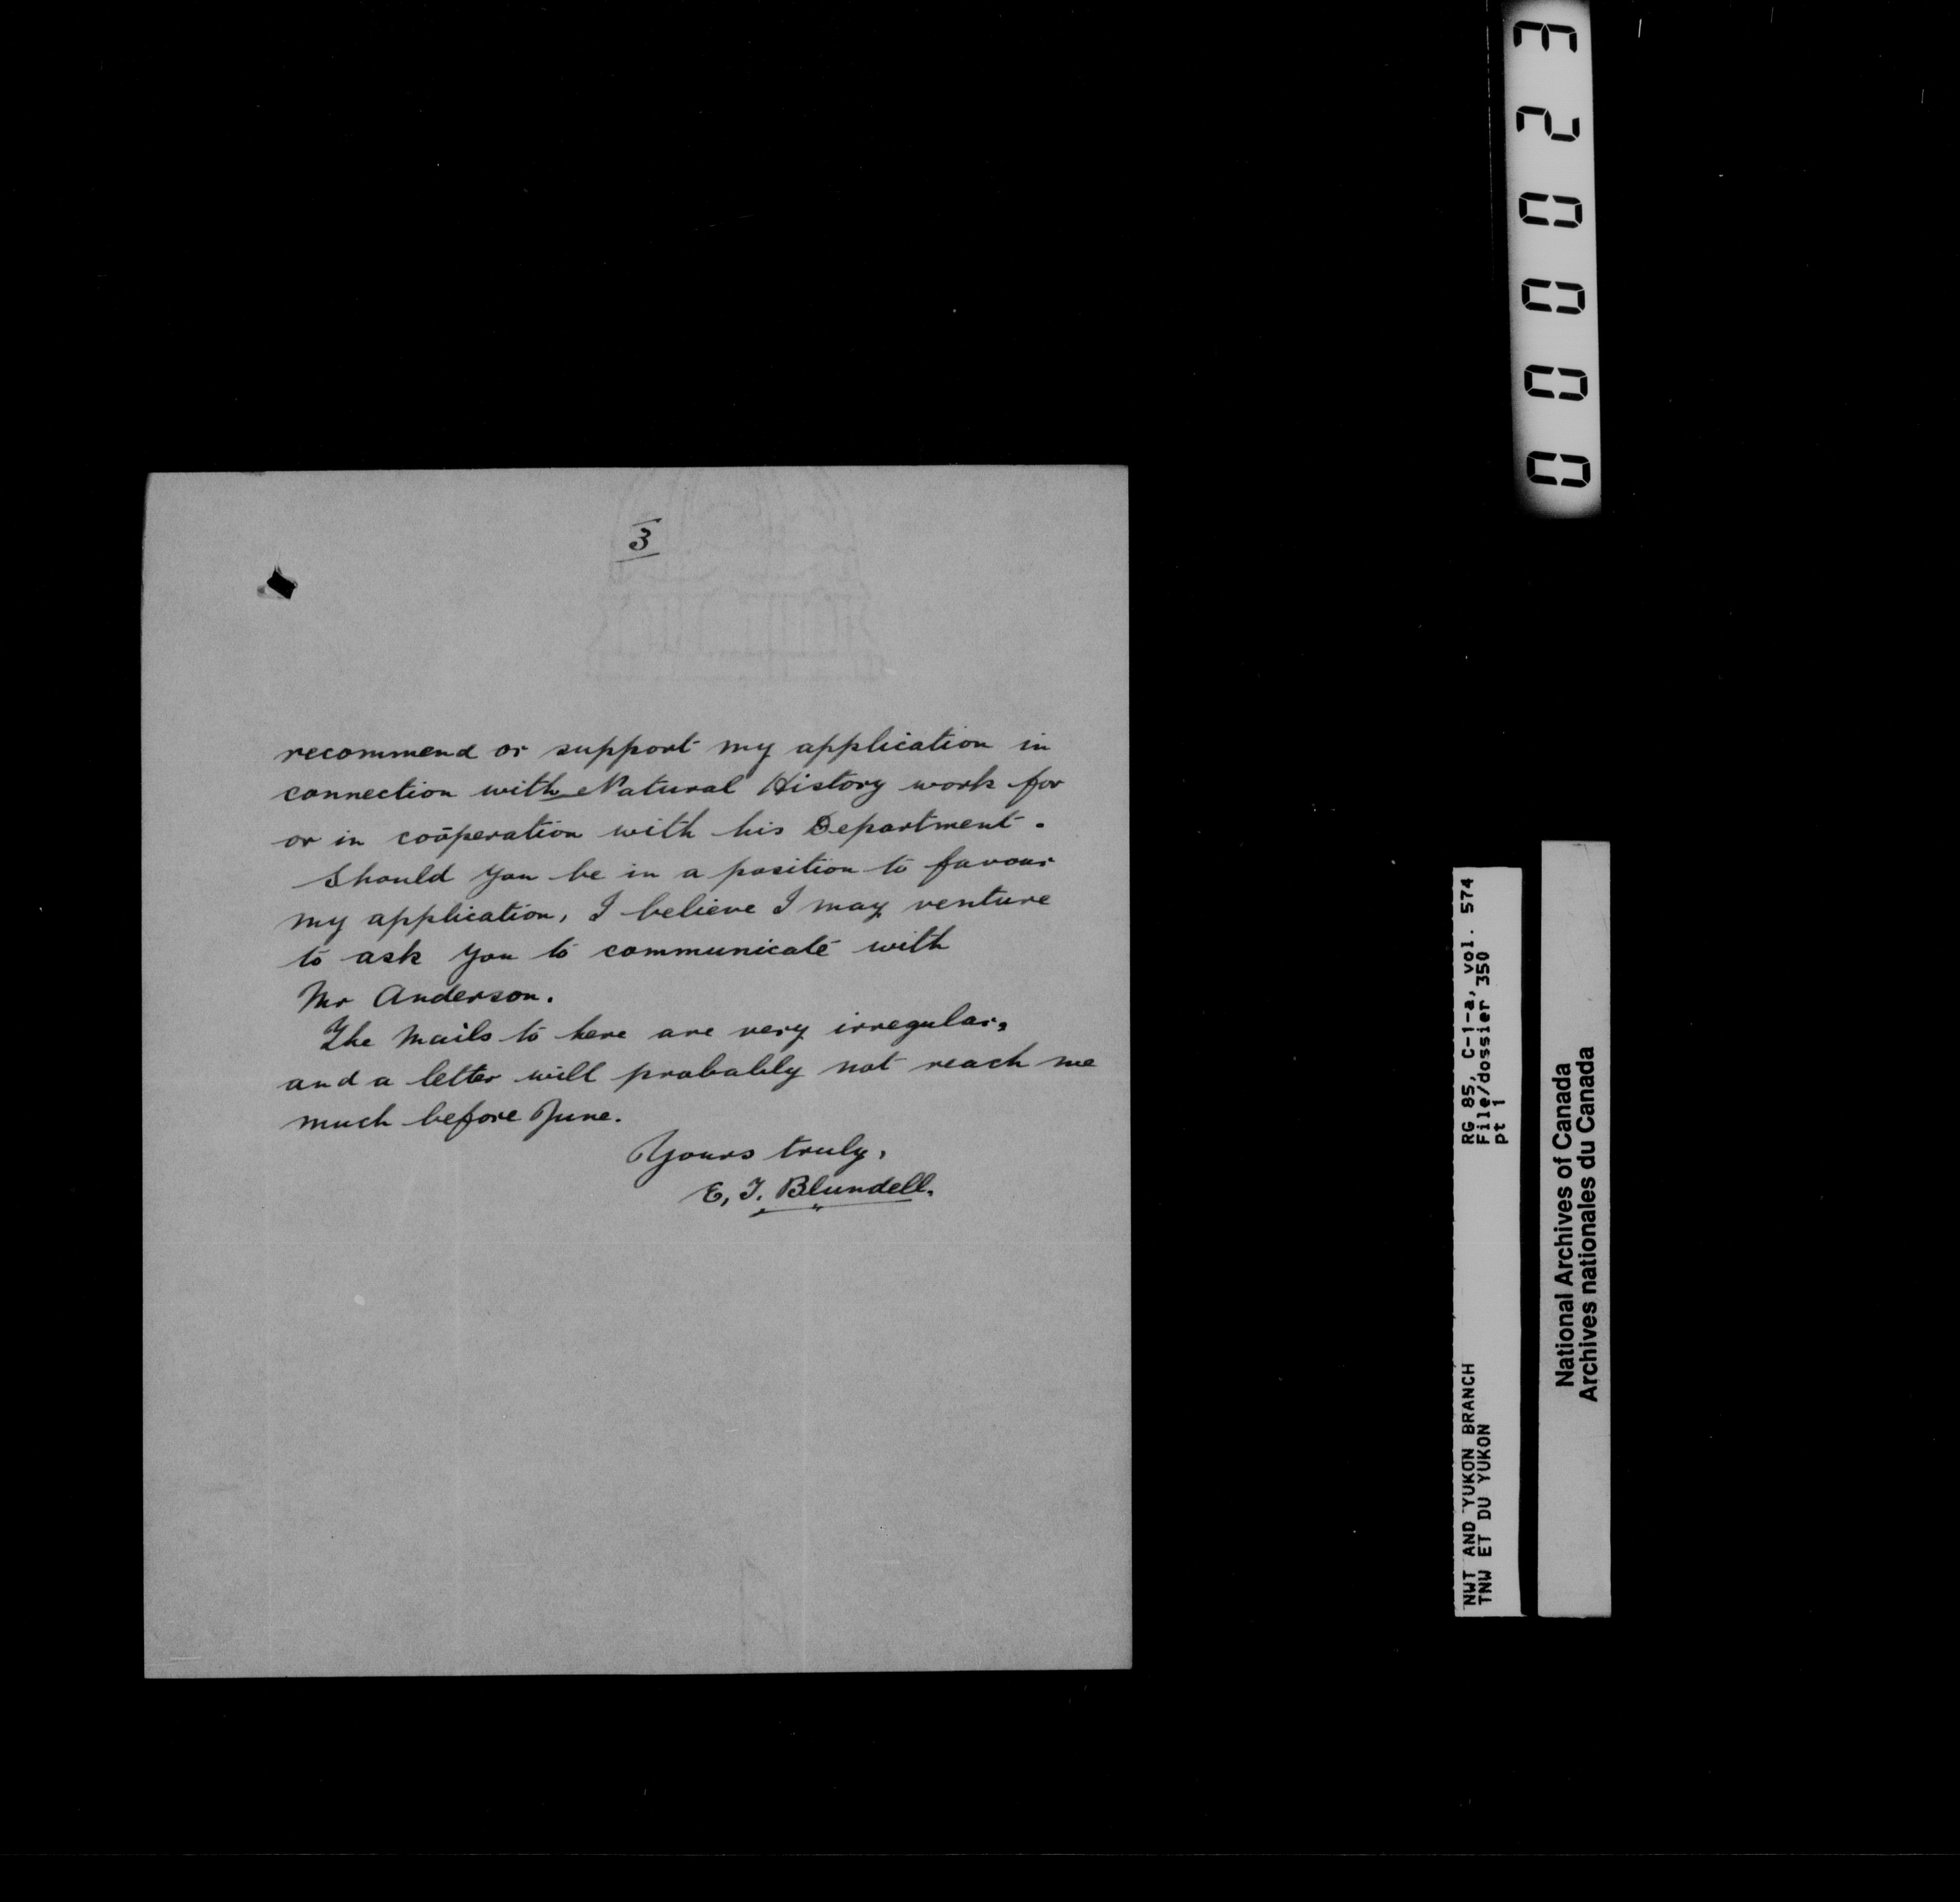 3
recommend or support my application in
connection with Natural History work for
or in coöperation with his Department.
Should you be in a position to favour
my application, I believe I may venture
to ask you to communicate with
Mr Anderson.
The Mails to here are very irregular,
and a letter will probably not reach me
much before June.
Yours truly,
E. T. Blundell.
000023
RG 85, C-1-a, vol. 574
File/dossier 350
pt 1
NWT AND YUKON BRANCH
TNW ET DU YUKON
National Archives of Canada
Archives nationales du Canada